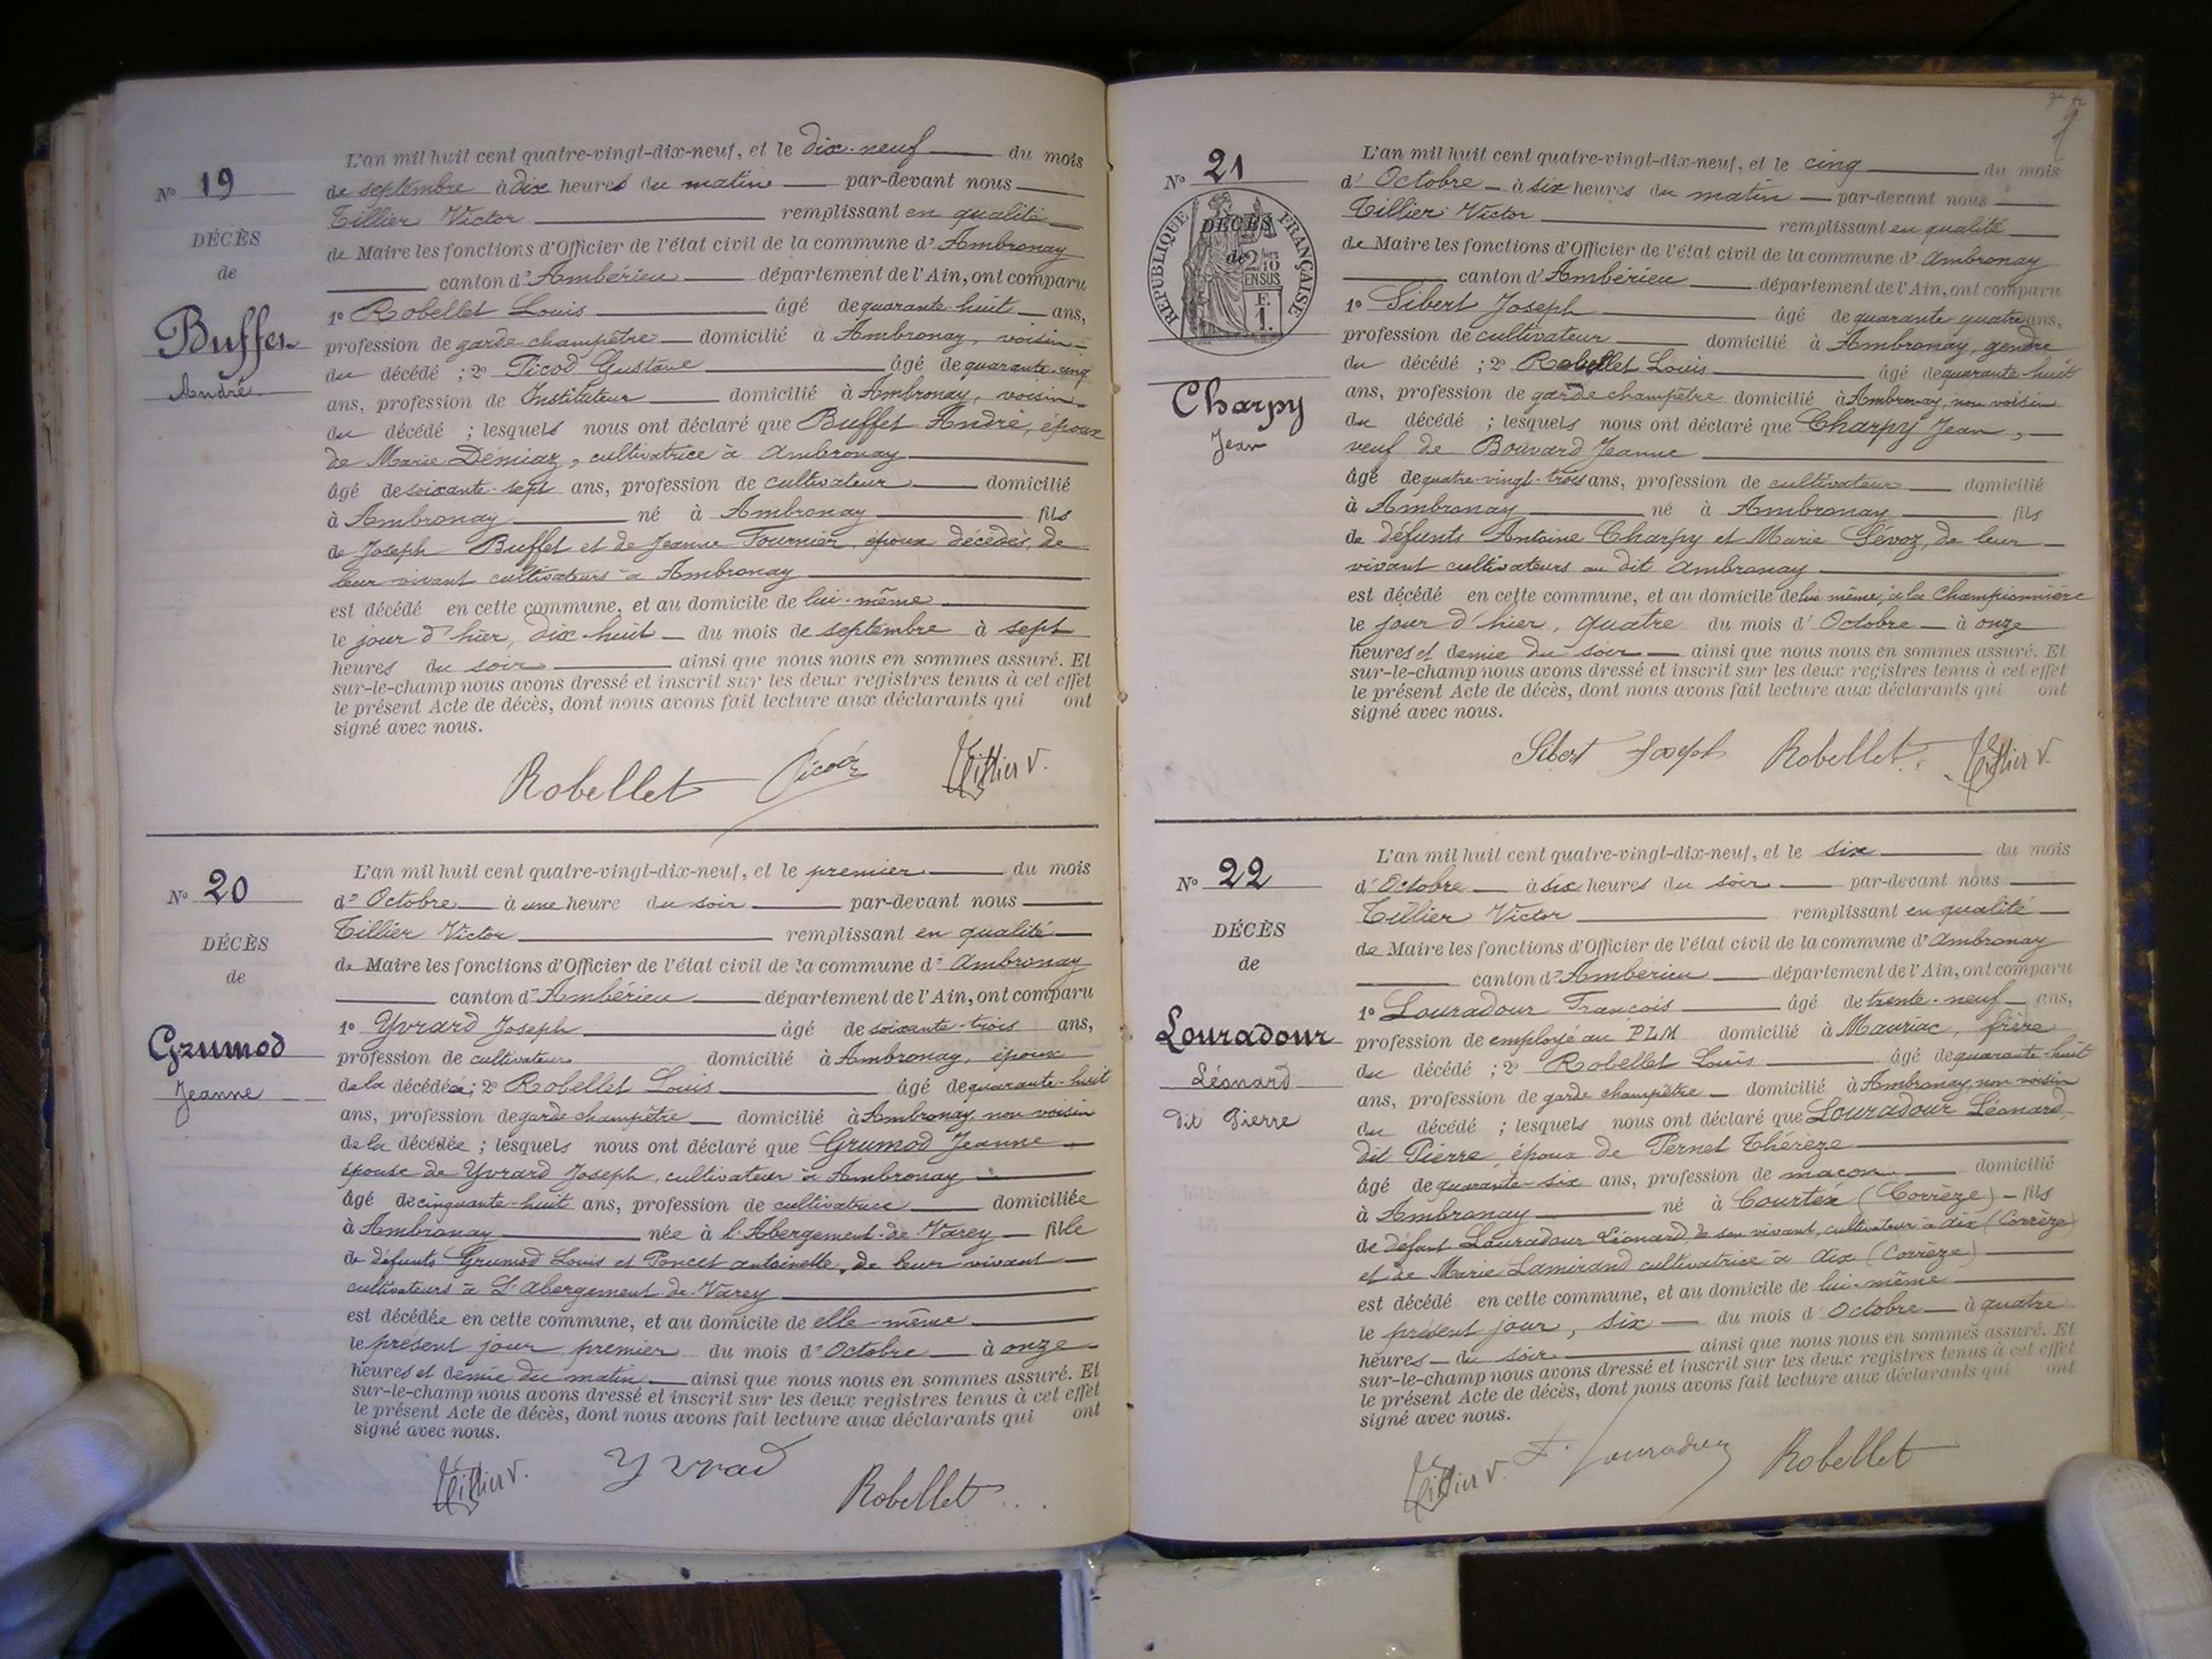 N° 19
DÉCÈS
de
Buffet
André
L'an mil huit cent quatre-vingt-dix-neuf, et le dix-neuf du mois
de septembre à dix heures du matin par-devant nous
Tillier Victor remplissant en qualité
de Maire les fonctions d'Officier de l'état civil de la commune d'Ambronay
canton d'Ambérieu département de l'Ain, ont comparu
1° Robellet Louis âgé de quarante-huit ans,
profession de garde champêtre domicilié à Ambronay, voisin
du décédé ; 2° Picod Gustave âgé de quarante-cinq
ans, profession de Instituteur domicilié à Ambronay, voisin
du décédé ; lesquels nous ont déclaré que Buffet André, époux
de Marie Démiaz, cultivatrice à Ambronay
âgé de soixante-sept ans, profession de cultivateur domicilié
à Ambronay né à Ambronay fils
de Joseph Buffet et de Jeanne Fournier, époux décédés, de
leur vivant cultivateurs à Ambronay
est décédé en cette commune, et au domicile de lui-même
le jour d'hier, dix-huit du mois de septembre à sept
heures du soir ainsi que nous nous en sommes assuré. Et
sur-le-champ nous avons dressé et inscrit sur les deux registres tenus à cet effet
le présent Acte de décès, dont nous avons fait lecture aux déclarants qui ont
signé avec nous.
Robellet Picod Tillier V.
N° 20
DÉCÈS
de
Grumod
Jeanne
L'an mil huit cent quatre-vingt-dix-neuf, et le premier du mois
d'Octobre à une heure du soir par-devant nous
Tillier Victor remplissant en qualité
de Maire les fonctions d'Officier de l'état civil de la commune d'Ambronay
canton d'Ambérieu département de l'Ain, ont comparu
1° Yvrard Joseph âgé de soixante-trois ans,
profession de cultivateur domicilié à Ambronay, époux
de la décédée ; 2° Robellet Louis âgé de quarante-huit
ans, profession de garde champêtre domicilié à Ambronay, non voisin
de la décédée ; lesquels nous ont déclaré que Grumod Jeanne
épouse de Yvrard Joseph, cultivateur à Ambronay
âgé de cinquante-huit ans, profession de cultivatrice domiciliée
à Ambronay née à l'Abergement-de-Varey fille
de défunts Grumod Louis et Poncet antoinette, de leur vivant
cultivateurs à L'abergement-de-Varey
est décédée en cette commune, et au domicile de elle-même
le présent jour, premier du mois d'Octobre à onze
heures et demie du matin ainsi que nous nous en sommes assuré. Et
sur-le-champ nous avons dressé et inscrit sur les deux registres tenus à cet effet
le présent Acte de décès, dont nous avons fait lecture aux déclarants qui ont
signé avec nous.
Tillier V. Yvrad Robellet
N° 21
RÉPUBLIQUE FRANÇAISE
DÉCÈS
de
2/10
EN SUS
F.
1.
Charpy
Jean
L'an mil huit cent quatre-vingt-dix-neuf, et le cinq du mois
d'Octobre à six heures du matin par-devant nous
Tillier Victor remplissant en qualité
de Maire les fonctions d'Officier de l'état civil de la commune d'Ambronay
canton d'Ambérieu département de l'Ain, ont comparu
1° Sibert Joseph âgé de quarante quatre ans,
profession de cultivateur domicilié à Ambronay, gendre
du décédé ; 2° Robellet Louis âgé de quarante-huit
ans, profession de garde champêtre domicilié à Ambronay, non voisin
du décédé ; lesquels nous ont déclaré que Charpy Jean,
veuf de Bouvard Jeanne
âgé de quatre-vingt-trois ans, profession de cultivateur domicilié
à Ambronay né à Ambronay fils
de défunts Antoine Charpy et Marie Gévoz, de leur
vivant cultivateurs au dit Ambronay
est décédé en cette commune, et au domicile de lui même, à la Championnière
le jour d'hier, quatre du mois d'Octobre à onze
heures et demie du soir ainsi que nous nous en sommes assuré. Et
sur-le-champ nous avons dressé et inscrit sur les deux registres tenus à cet effet
le présent Acte de décès, dont nous avons fait lecture aux déclarants qui ont
signé avec nous.
Sibert Joseph Robellet Tillier V.
N° 22
DÉCÈS
de
Louradour
Léonard
dit Pierre
L'an mil huit cent quatre-vingt-dix-neuf, et le six du mois
d'Octobre à six heures du soir par-devant nous
Tillier Victor remplissant en qualité
de Maire les fonctions d'Officier de l'état civil de la commune d'Ambronay
canton d'Ambérieu département de l'Ain, ont comparu
1° Louradour François âgé de trente-neuf ans,
profession de employé au PLM domicilié à Mauriac, frère
du décédé ; 2° Robellet Louis âgé de quarante-huit
ans, profession de garde champêtre domicilié à Ambronay, non voisin
du décédé ; lesquels nous ont déclaré que Louradour Léonard
dit Pierre, époux de Pernet Thérèze
âgé de quarante-six ans, profession de maçon domicilié
à Ambronay né à Courtéx (Corrèze) fils
de défunt Louradour Léonard, de son vivant, cultivateur à Aix (Corrèze)
et de Marie Lamirand cultivatrice à Aix (Corrèze)
est décédé en cette commune, et au domicile de lui-même
le présent jour, six du mois d'Octobre à quatre
heures du soir ainsi que nous nous en sommes assuré. Et
sur-le-champ nous avons dressé et inscrit sur les deux registres tenus à cet effet
le présent Acte de décès, dont nous avons fait lecture aux déclarants qui ont
signé avec nous.
Tillier V. F. Louradour Robellet